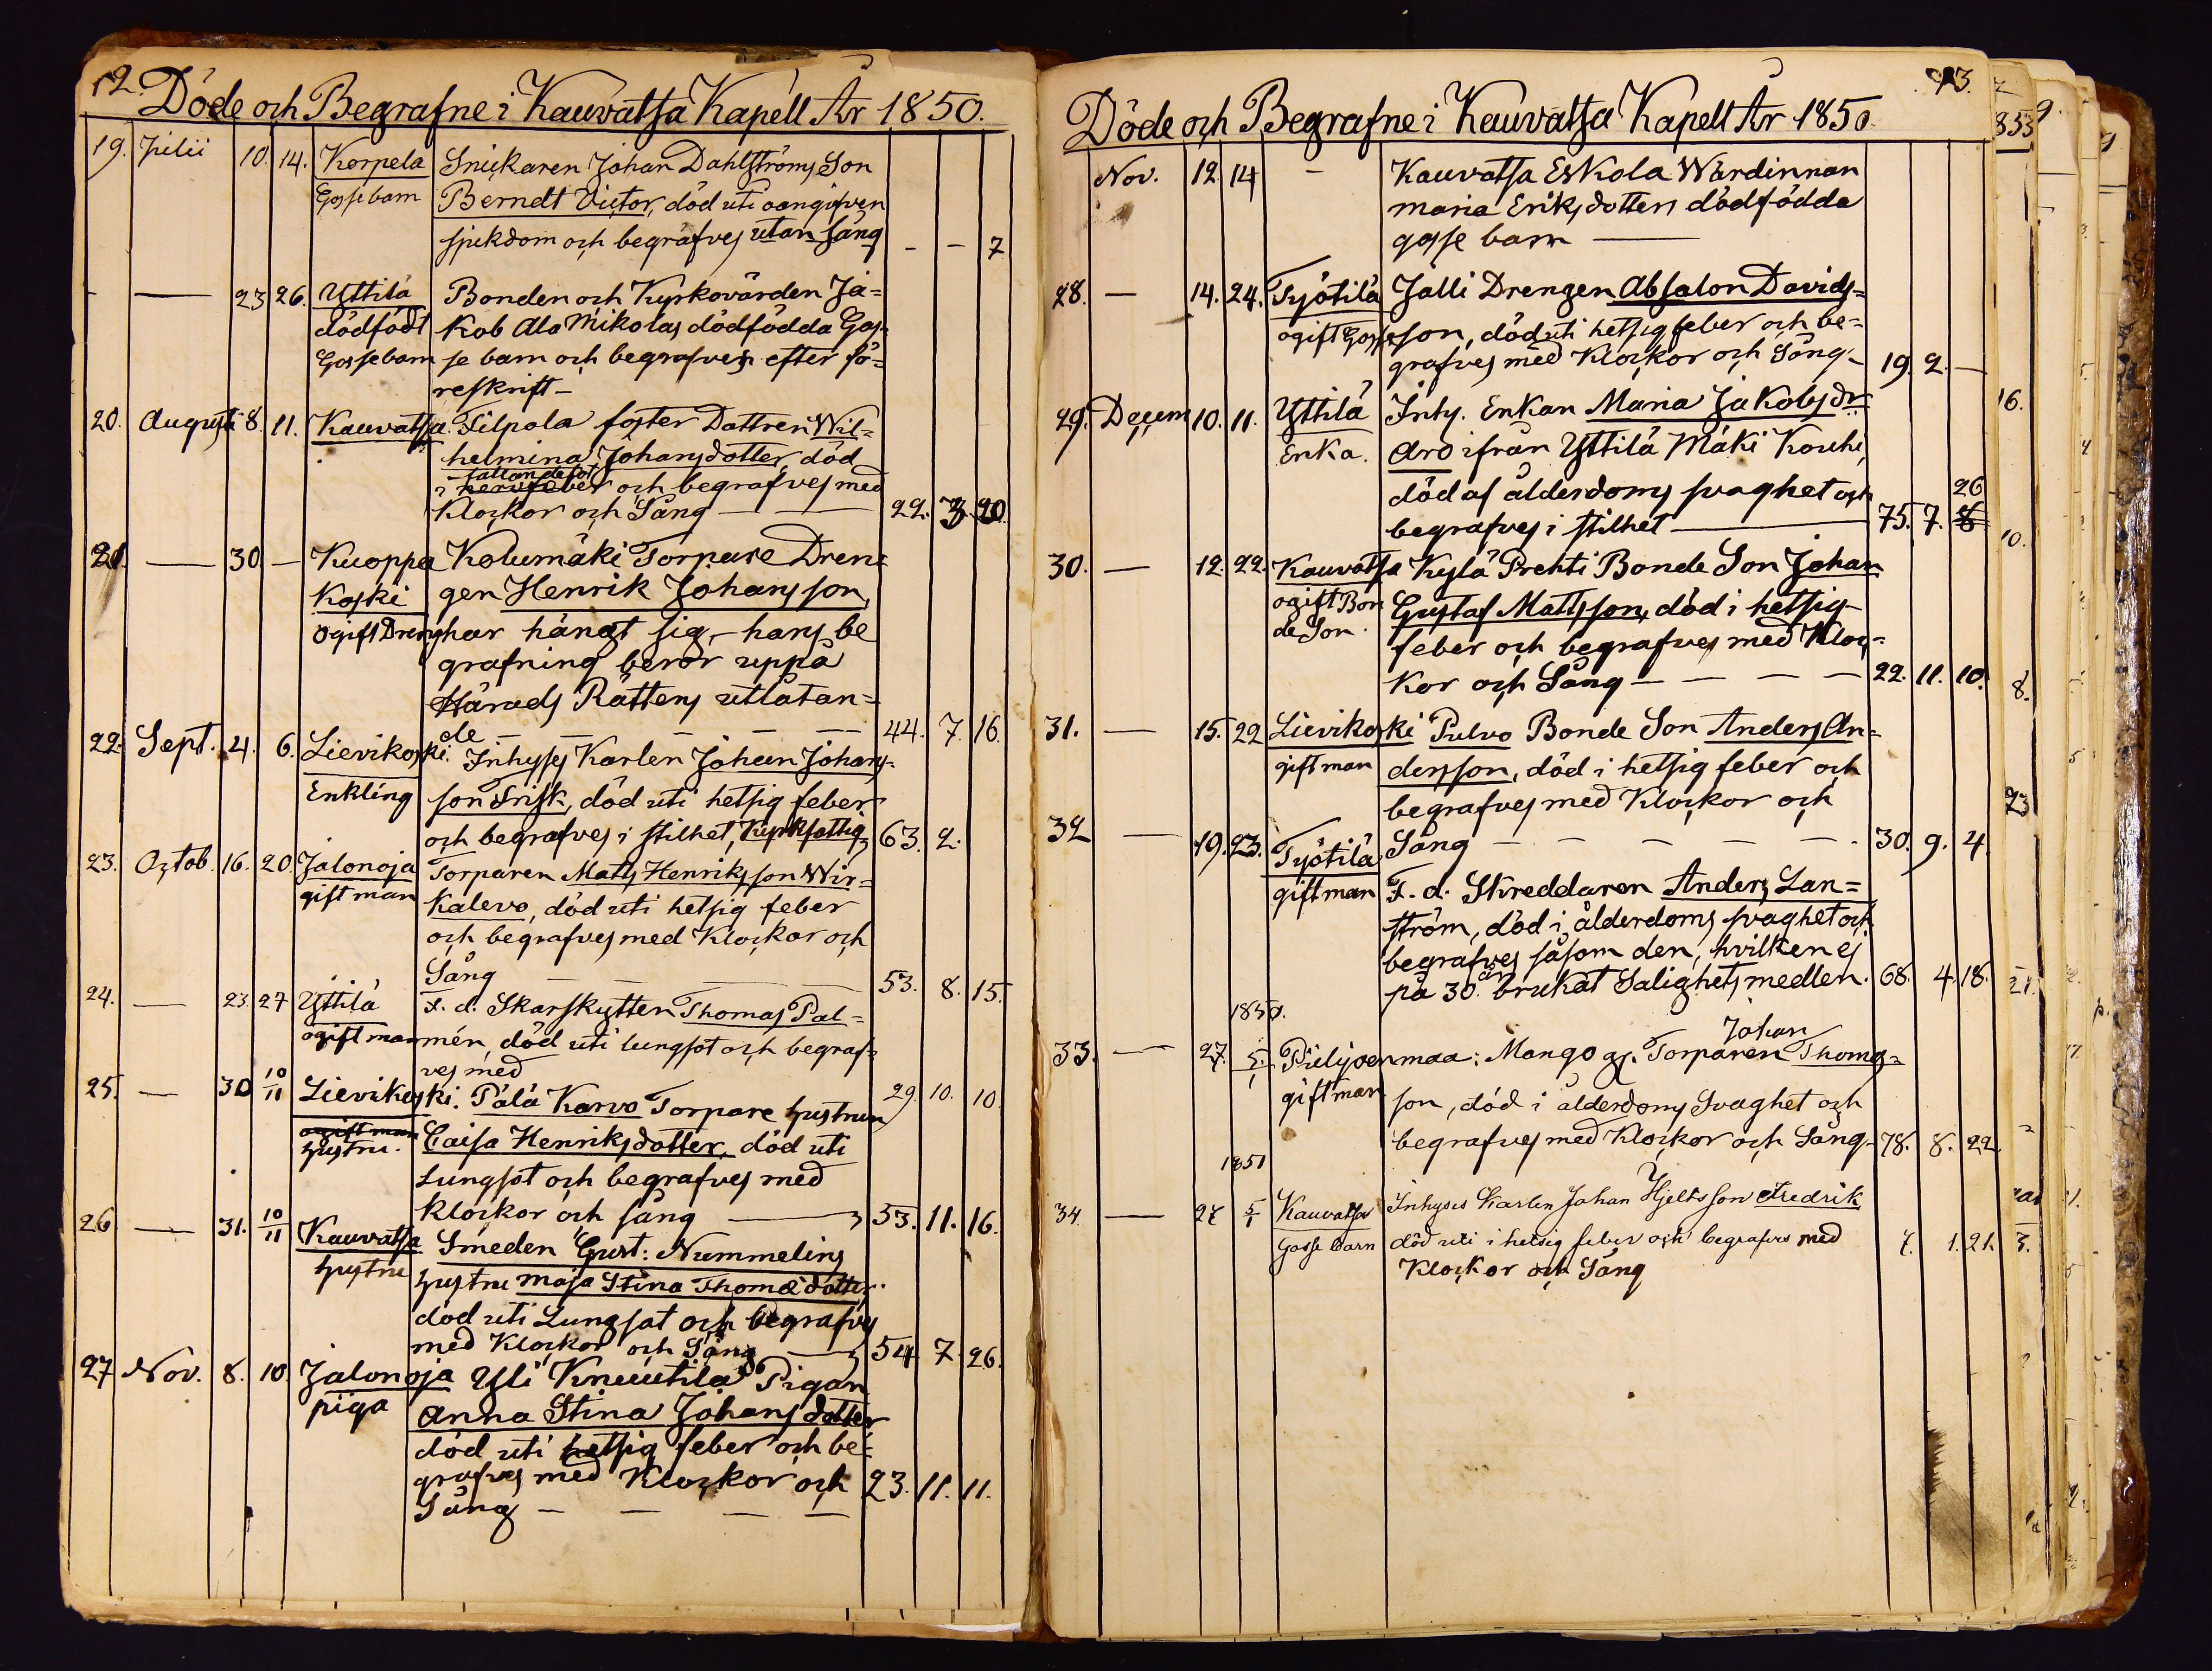 12.
Döde och Begrafne i Kauvatsa Kapell År 1850.
19. Julii 10. 14. Korpela Snickaren Johan Dahlströms Son
Gossebarn Berndt Victor, död uti oangifven
sjukdom och begrafves utan sång - - 7
- — 23 26. Yttilä Bonden och Kyrkovärden Ja=
dödfödt kob Ala Mikolas dödfödda Gos=
Gossebarn se barn och begrafves efter fö=
reskrift –
20. Augusti 8. 11. Kauvatsa. Tilpola foster Dottren Wil=
helmina Johansdotter, död
fallandesot
i nervfeber och begrafves med
Klockor och Sång — — 22. 3. 20.
21. — 30. — Kuoppa Kolumäki Torpare Dren=
Koski gen Henrik Johansson,
ogift Dreng har hängt sig, – hans be
grafning beror uppå
Härads Rättens utlåtan=
de — — — — — 44. 7. 16.
22. Sept. 4. 6. Lievikoski. Inhyses Karlen Johan Johans-
Enkling son Frisk, död uti hetsig feber
och begrafves i stilhet, Kyrkfattig 63. 2.
23. Octob. 16. 20. Jalonoja Torparen Mats Henriksson Wir=
gift man Kalevo, död uti hetsig feber
och begrafves med Klockor och
Sång — — — 53. 8. 15.
24. — 23. 27 Yttilä F. d. Skarskytten Thomas Pal=
ogift man mén, död uti lungsot och begraf=
ves med 29. 10. 10.
25. — 30 10/11 Lievikoski. Pälä Karvo Torpare hustrun
ogift man Caisa Henriksdotter, död uti
hustru. Lungsot och begrafves med
klockor och sång — 53. 11. 16.
26 — 31. 10/11 Kauvatsa Smeden Gust: Nummelins
hustru hustru Maja Stina Thomædotter
död uti Lungsot och begrafves
med Klockor och Sång — 54. 7. 26.
27 Nov. 8. 10. Jalonoja Yli Knuutila Pigan
piga Anna Stina Johansdotter
död uti hetsig feber och be=
grafves med Klockor och 23. 11. 11.
Sång — — — —
13.
Döde och Begrafne i Kauvatsa Kapell År 1850.
Nov. 12 14 – Kauvatsa Eskola Wärdinnan
Maria Eriksdotters dödfödda
gosse barn —
28. — 14. 24. Työtilä Jalli Drengen Absalon Davids=
ogift Gosse son, död uti hetsig feber och be=
grafves med Klockor och Sång– 19. 2. —
29. Decem 10. 11. Yttilä Inhy. Enkan Maria Jakobsdr
Enka. Aro ifrån Yttilä Mäki Kouhi,
död af ålderdoms svaghet och 26
begrafves i stilhet — 75. 7. 8
30. — 12. 22. Kauvatsa Kylä Prehti Bonde Son Johan
ogift Bon Gustaf Mattsson, död i hetsig
de Son. feber och begrafves med Kloc=
kor och Sång — — — — 22. 11. 10.
31. — 15. 22 Lievikoski Pulvo Bonde Son Anders An=
gift man dersson, död i hetsig feber och
begrafves med Klockor och
Sång — — — — — 30. 9. 4.
32 — 19. 23. Työtilä
gift man F. d. Skreddaren Anders Lan=
ström, död i ålderdoms svaghet och
begrafves såsom den, hvilken ej
på 30. år brukat Salighetsmedlen. 68. 4. 18.
1850.
Johan
33. — 27. 5/1 Piilijoenmaa: Mango gs. Torparen Thoms=
gift man son, död i ålderdoms Svaghet och
begrafves med Klockor och Sång– 78. 8. 22.
1851
34 — 27 5/1 Kauvatsa Inhyses Karlen Johan Hjelts son Fredrik
Gosse Barn död uti i hetsig feber och begrafves med 7. 1. 21.
Klockor och Sång
853
16.
10.
8.
23
21.
3.